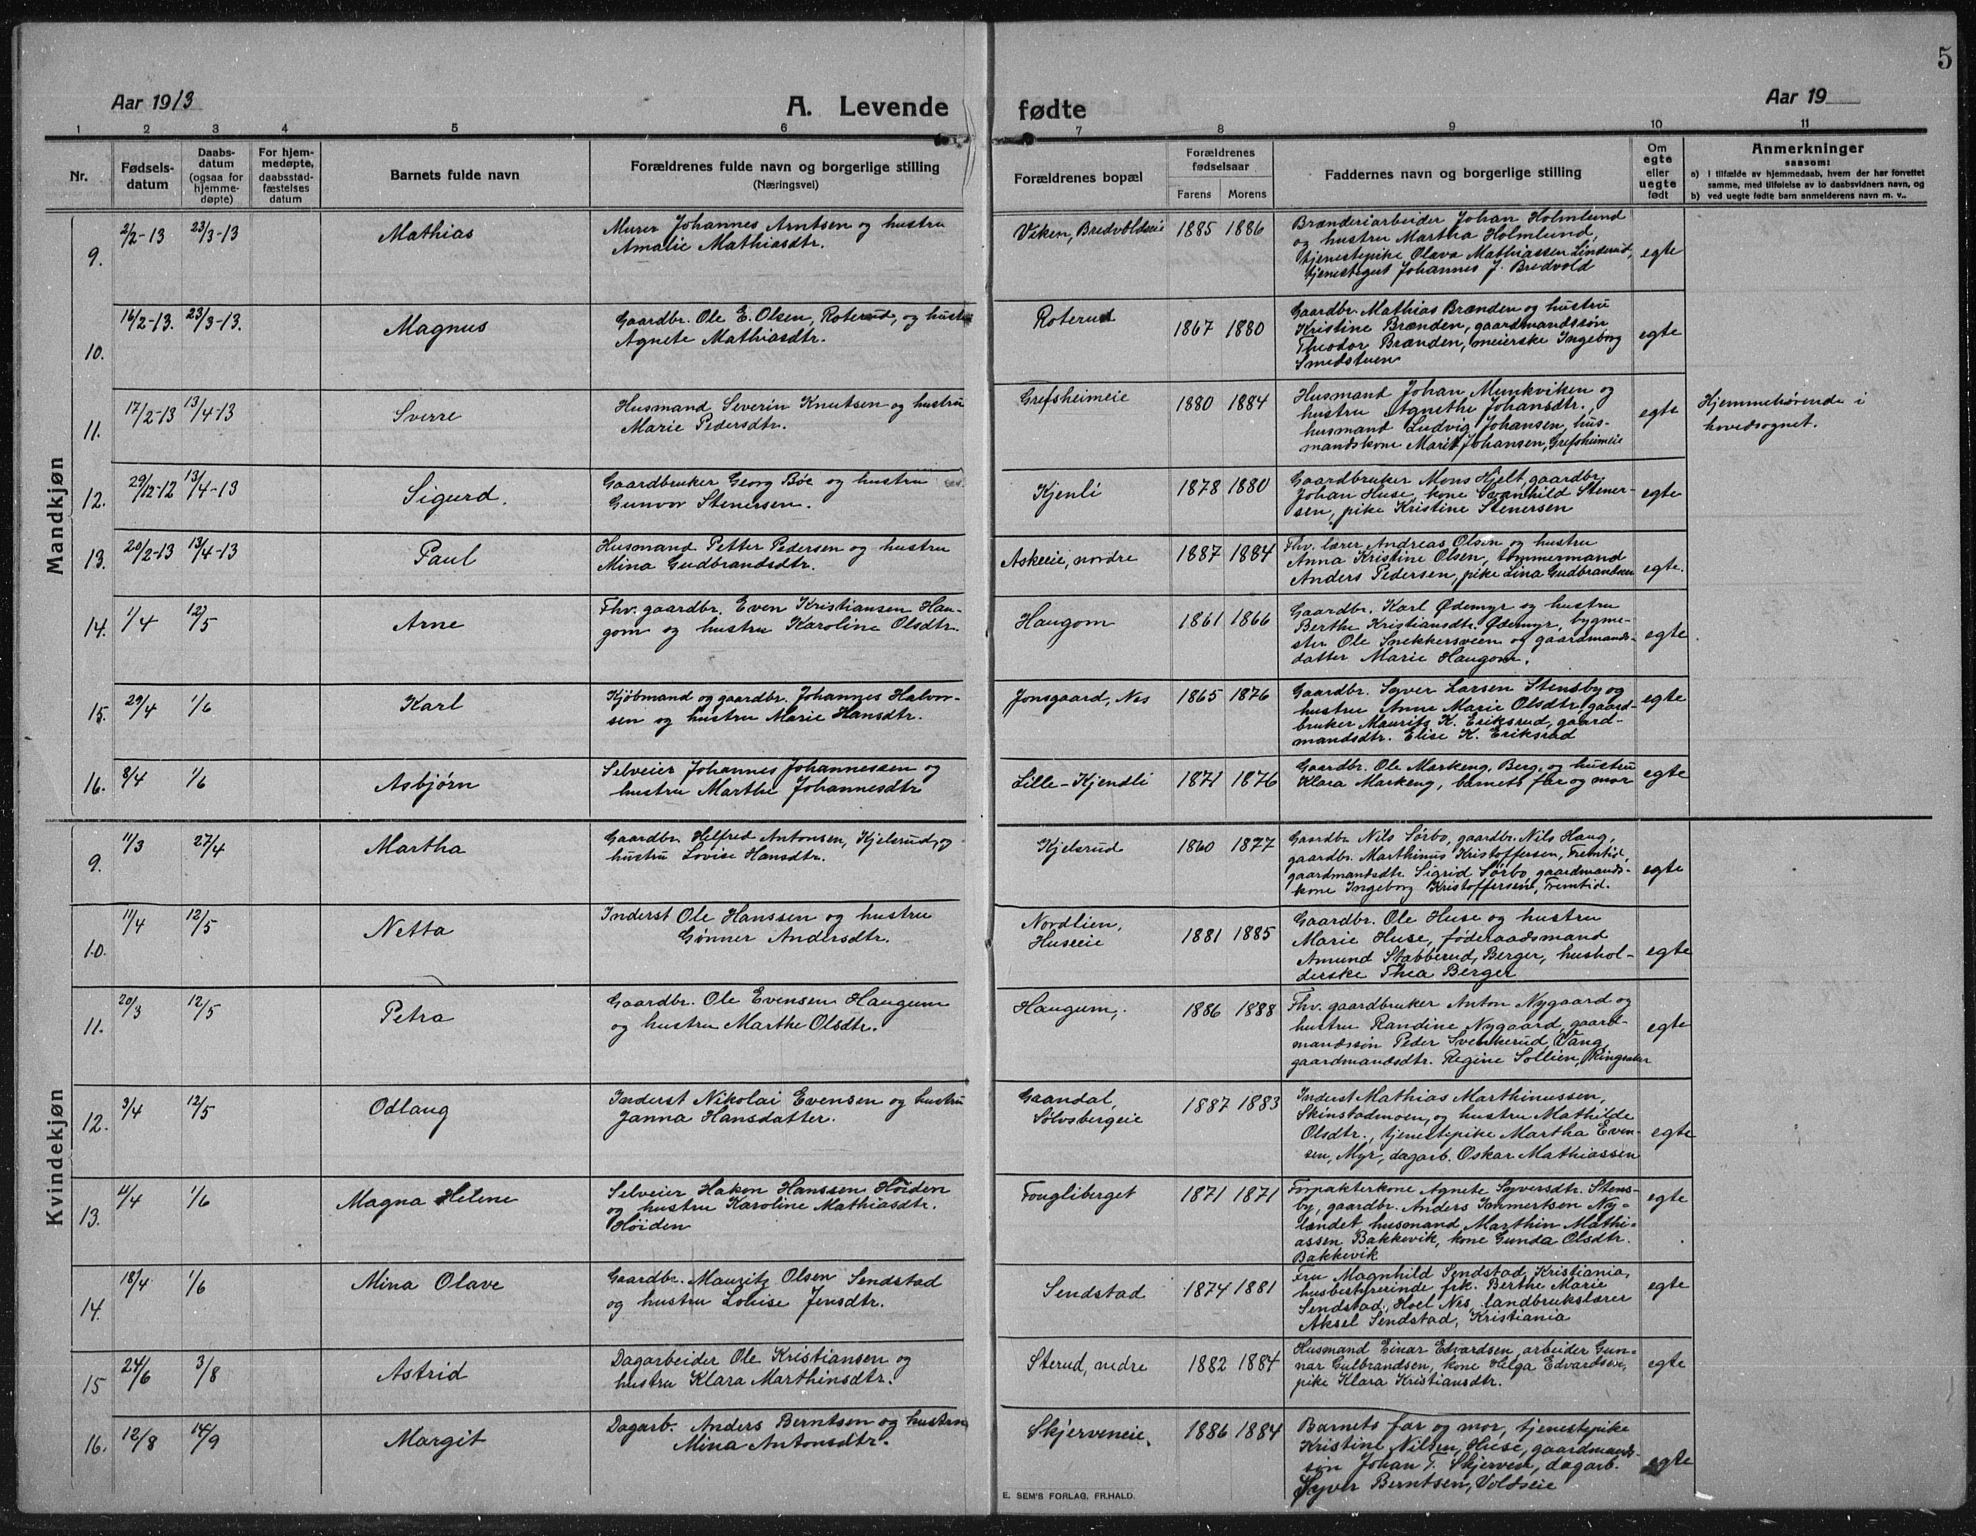 5
Aar 1913
A. Levende fødte
Aar 19
1 2 3 4 5 6 7 8 9 10 11
Nr.
Fødsels-
datum
Daabs-
datum
(ogsaa for
hjemme-
døpte)
For hjem-
medøpte,
daabsstad-
fæstelses
datum
Barnets fulde navn
Forældrenes fulde navn og borgerlige stilling
(Næringsvei)
Forældrenes bopæl
Forældrenes
fødselsaar
Farens Morens
Faddernes navn og borgerlige stilling
Om
egte
eller
uegte
født
Anmerkninger
saasom:
a) I tilfælde av hjemmedaab, hvem der har forrettet
samme, med tilføielse av to daabsvidners navn, og
b) ved uegte fødte barn anmelderens navn m. v..
Mandkjøn
9. 2/2-13 23/3-13 Mathias
Murer Johannes Arntsen og hustru
Amalie Mathiasdtr.
Viken, Bredvoldseie 1885 1886
Brænderiarbeider Johan Holmlund
og hustru Martha Holmlund,
tjenestepike Olava Mathiassen Linderud,
tjenestegut Johannes J. Bredvold
egte
10. 16/2-13. 23/3-13. Magnus
Gaardbr. Ole E. Olsen, Roterud, og hustru
Agnete Mathiasdtr.
Roterud 1867 1880
Gaardbr. Mathias Brænden og hustru
Kristine Brænden, gaardmandssøn
Theodor Brænden, meierske Ingeborg
Smedstuen
egte
11. 17/2-13 13/4-13 Sverre
Husmand Severin Knutsen og hustru
Marie Pedersdtr.
Grefsheimeie 1880 1884
Husmand Johan Munkviken og
hustru Agnethe Johansdtr.,
husmand Ludvig Johansen, hus-
mandskone Marit Johansen, Grefsheimeie
egte
Hjemmehørende i
hovedsognet.
12. 29/12-12 13/4-13 Sigurd.
Gaardbruker Georg Bøe og hustru
Gunvor Stenersen.
Kjenli 1878 1880
Gaardbruker Mons Hjelt, gaardbr.
Johan Huse, kone Svanhild Stener-
sen, pike Kristine Stenersen
egte
13. 20/2-13 13/4-13 Paul
Husmand Petter Pedersen og hustru
Mina Gudbrandsdtr.
Askeeie, nordre 1887 1884
Fhv. lærer Andreas Olsen og hustru
Anna Kristine Olsen, tømmermand
Anders Pedersen, pike Lina Gudbrandsen
egte.
14. 1/4 12/5 Arne
Fhv. gaardbr. Even Kristiansen Hau-
gom og hustru Karoline Olsdtr.
Haugom 1861 1866
Gaardbr. Karl Ødemyr og hustru
Berthe Kristiansdtr. Ødemyr, bygme-
ster Ole Snekkersveen og gaardmands-
datter Marie Haugom.
egte
15. 29/4 1/6 Karl
Kjøbmand og gaardbr. Johannes Halvor-
sen og hustru Marie Hansdtr.
Jonsgaard, Nes 1865 1876
Gaardbr. Syver Larsen Stensby og
hustru Anne Marie Olsdtr, gaard-
bruker Mauritz K. Eriksrud, gaard-
mandsdtr. Elise K. Eriksrud
egte
16. 8/4 1/6 Asbjørn
Selveier Johannes Johannessen og
hustru Marthe Johannesdtr
Lille-Kjendli 1871 1876
Gaardbr. Ole Markeng, Berg, og hustru
Klara Markeng, barnets far og mor
egte
Kvindekjøn
9. 11/3 27/4 Martha
Gaardbr. Helfred Antonsen, Kjelsrud, og
hustru Lovise Hansdtr.
Kjelsrud 1860 1877
Gaardbr Nils Sørbo, gaardbr. Nils Haug,
gaardbr. Marthinus Kristoffersen, Fremtid,
gaardmandsdtr. Sigrid Sørbo, gaardmands-
kone Ingeborg Kristoffersen, Fremtid.
egte
10. 11/4 12/5 Netta
Inderst Ole Hanssen og hustru
Gønner Andersdtr.
Nordlien,
Huseeie
1881 1885
Gaardbr. Ole Huse og hustru
Marie Huse, føderaadsmand
Amund Stabberud, Berger, hushol-
derske Thea Berger
egte
11. 20/3 12/5 Petra
Gaardbr. Ole Evensen Haugum
og hustru Marthe Olsdtr.
Haugum, 1886 1888
Fhv. gaardbruker Anton Nygaard og
hustru Randine Nygaard, gaard-
mandssøn Peder Svenkerud, Vang,
gaardmandsdtr. Regine Sollien, Ringsaker
egte
12. 3/4 12/5 Odlaug
Inderst Nikolai Evensen og hustru
Janna Hansdatter.
Gaandal,
Sølvsbergeie
1887 1883
Inderst Mathias Marthinussen,
Skinstadmoen, og hustru Mathilde
Olsdtr., tjenestepike Martha Even-
sen, Myr, dagarb. Oskar Mathiassen
egte
13. 11/4 1/6 Magna Helene
Selveier Hakon Hanssen Høiden
og hustru Karoline Mathiasdtr.
Høiden
Fougliberget 1871 1871
Forpakterkone Agnete Syversdtr. Stens-
by, gaardbr. Anders Ihmertsen Ny-
landet husmand Marthin Mathi-
assen Bakkevik, kone Gunda Olsdtr.
Bakkevik
egte
14. 18/4 1/6 Mina Olave
Gaardbr. Mauritz Olsen Sendstad
og hustru Louise Jensdtr.
Sendstad 1874 1881
Fru Magnhild Sendstad, Kristiania,
husbestyrerinde frk. Berthe Marie
Sendstad, Hoel Nes, landbrukslærer
Aksel Sendstad, Kristiania
egte
15 24/6 3/8 Astrid
Dagarbeider Ole Kristiansen og
hustru Klara Marthinsdtr.
Sterud, nedre 1882 1884
Husmand Einar Edvardsen, arbeider Gun-
nar Gulbrandsen, kone Helga Edvardsen,
pike Klara Kristiansdtr.
egte
16. 12/8 14/9 Margit
Dagarb. Anders Berntsen og hustru
Mina Antonsdtr.
Skjerveneie, 1886 1884
Barnets far og mor, tjenestepike
Kristine Nilsen, Huse, gaardmands-
søn Johan T. Skjerven, dagarb.
Syver Berntsen, Voldseie
egte
E. SEM'S FORLAG, FR.HALD.